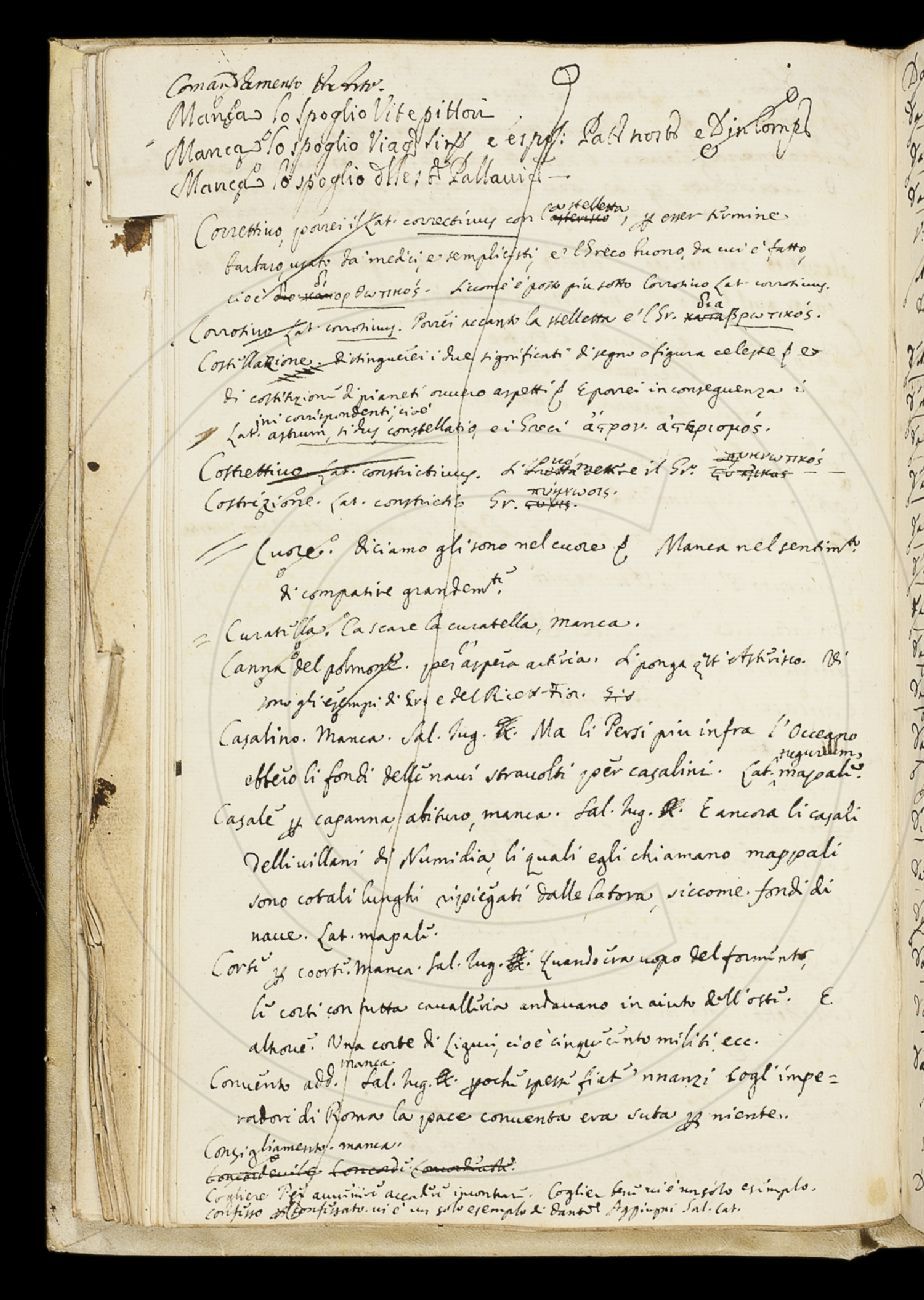 Comandamento
Manca lo spoglio Vite pittori
Manca lo spoglio Viag. Sin. e esp. Pat. nost. e
Manca lo spoglio Pallavic.
Correttivo, porrei il Lat. correctivus con castelletta asterisco, p esser termine
barbaro usato da i medici, e semplicisti, e 'l Greco buono, da cui è fatto,
cioè διορθωτικός. Siccome è posto più sotto Corrosivo Lat. corrosivus.
Corrosivo Lat. corrosivus. Porrei accanto la stelletta e 'l Gr. διαβρωτικός.
Costillazione. distinguerei i due significati di segno o figura celeste e
di costituzione di pianeti ovvero aspetti E porrei in conseguenza i
ini corrispondenti, cioè
Lat. astrum, sidus constellatio e i Greci ἄστρον. ἀστερισμός.
Costrettivo Lat. constrictivus. e il Gr. πυκνωτικός
Costrizione. Lat. constrictio Gr. πύκνωσις.
Cuore. diciamo gli sono nel cuore Manca nel sentim.to
di compatire grandem.te
Curatella. Cascare la curatella, manca.
Canna del polmone. per l'aspera arteria. Si ponga Asterisco. Vi
sono gli esempi di Cr. e del Ricett. Fior.
Casalino. Manca. Sal. Iug. R. Ma li Persi piu infra l'Occeano
ebbero li fondi delle navi stravolti per casalini. Lat. tugurium, mapale.
Casale p capanna, abituro, manca. Sal. Iug. R. E ancora li casali
delli villani di Numidia, li quali egli chiamano mappali
sono cotali lunghi ripiegati dalle latora, siccome fondi di
nave. Lat. mapale.
Corte p coorte. Manca. Sal. Iug. R. Quando era uopo del formento,
le corti con tutta cavalleria andavano in aiuto dell'oste. E
altrove. Una corte di Liguri, cioè cinquecento militi, ecc.
Convento add. manca Sal. Iug. R. poche spesse fiate nnanzi sogl' impe=
radori di Roma la pace conventa era suta p niente.
Consigliamento. manca.
Cogliere Per avvenire accadere incontrare. Coglier bene vi è un solo esempio.
Confuso vi è un solo esempio di Dante Aggiugni Sal. Cat.